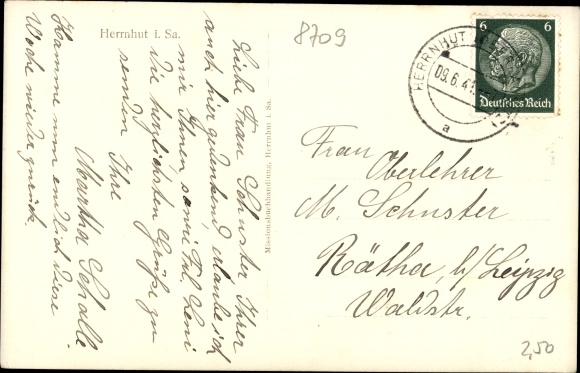 Herrnhut i. Sa.
8709
Liebe Frau Schuster Ihrer
auch hier gedenkend, erlaube ich
mir Ihnen sowie Frl. Leni
die herzlichsten Grüße zu
senden Ihre
Martha Scholle.
Komme nun endlich diese
Woche wieder zurück.
Missionsbuchhandlung, Herrnhut i. Sa.
HERRNHUT
09.6.41
a
6 6
Deutsches Reich
Frau
Oberlehrer
M. Schuster
Rötha, b/Leipzig
Waldstr.
2,50